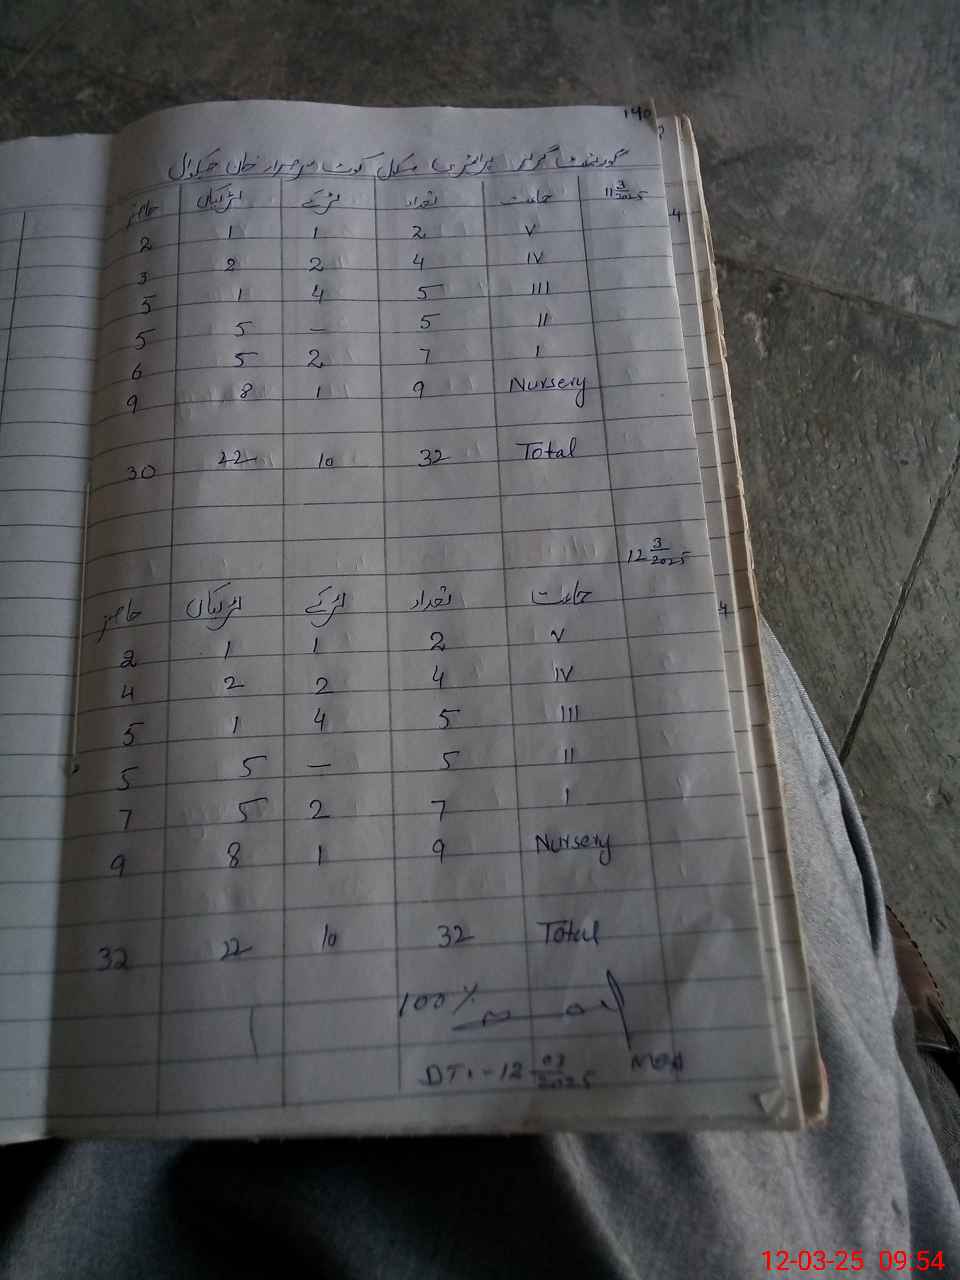 140
گورنمنٹ گرلز پرائمری سکول کوٹ سرفراز خان چکوال
11 3/2025 جماعت تعداد لڑکے لڑکیاں حاضر
V 2 1 1 2
IV 4 2 2 3
III 5 4 1 5
II 5 – 5 5
I 7 2 5 6
Nursery 9 1 8 9
Total 32 10 22 30
12 3/2025
جماعت تعداد لڑکے لڑکیاں حاضر
V 2 1 1 2
IV 4 2 2 4
III 5 4 1 5
II 5 – 5 5
I 7 2 5 7
Nursery 9 1 8 9
Total 32 10 22 32
100%
DT:-12 03/2025 MEA
12-03-25 09.54